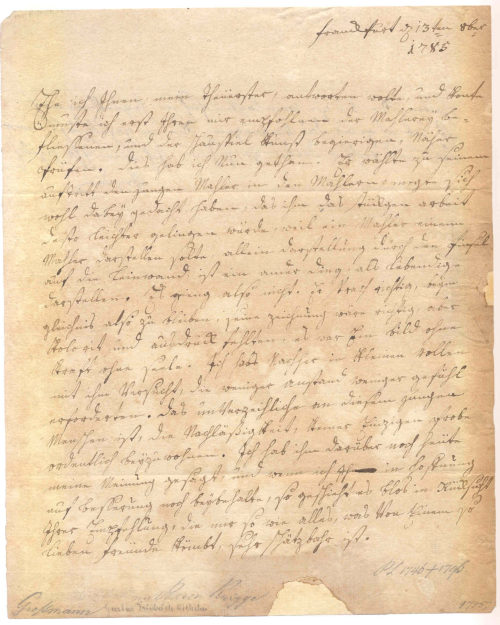 frankfurt d 13ten 8ber
1785
Ehe ich Ihnen, mein Theuerster, antworten wolte, und konte
muste ich erst Ihren mir empfohlenen der Mahlerey be-
flissenen, und der Schauspiel Kunst begierigen, Näher
prüfen. Dies hab ich Nun gethan. Er wählte zu seinem
auftritt den jungen Mahler in den Mahlern, mogte sich
wohl dabey gedacht haben, das ihm das stükgen arbeit
desto leichter gelingen würde, weil ein Mahler einen
Mahler darstellen solte. allein darstellung durch den Pinsel
auf die Leinwand ist ein ander ding, als lebendige
darstellen. Es gieng also nicht. beym
gleichnis also zu bleiben, seine zeichnung wäre richtig, aber
Kolorit und ausdruck fehlten, es war ein bild ohne
Kraft ohne seele. Ich Nachher in kleinen rollen
mit ihm versucht, die weniger anstand weniger gefühl
erforderten. Das unverzeihliche an diesem jungen
Menschen ist, die Nachlässigkeit, keiner einzigen probe
ordentlich beyzuwohnen. Ich hab ihm darüber noch heute
meine Meinung gesagt, und wenn ich ihn in hoffnung
auf besserung noch beybehalte, so geschieht es blos in Rücksicht
Ihrer Empfehlung, die mir so wie alles, was von einem so
lieben freunde kömbt, sehr schätzbahr ist.
1746 + 1796
Großmann Gustav Friedrich Wilhelm 1785